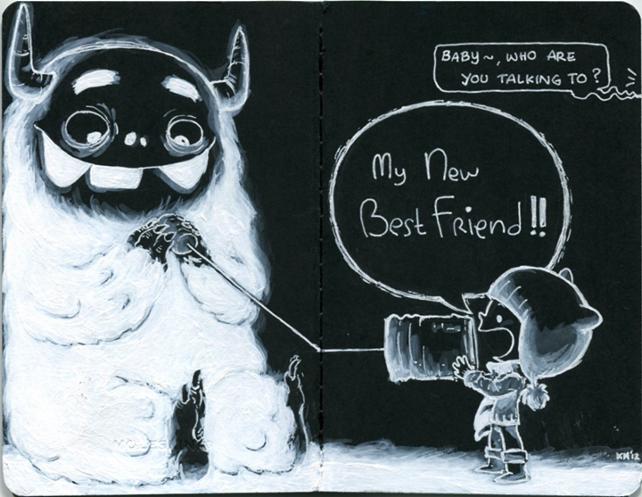 BABY~, WHO ARE
YOU TALKING TO?
My New
Best Friend!!
KN'12